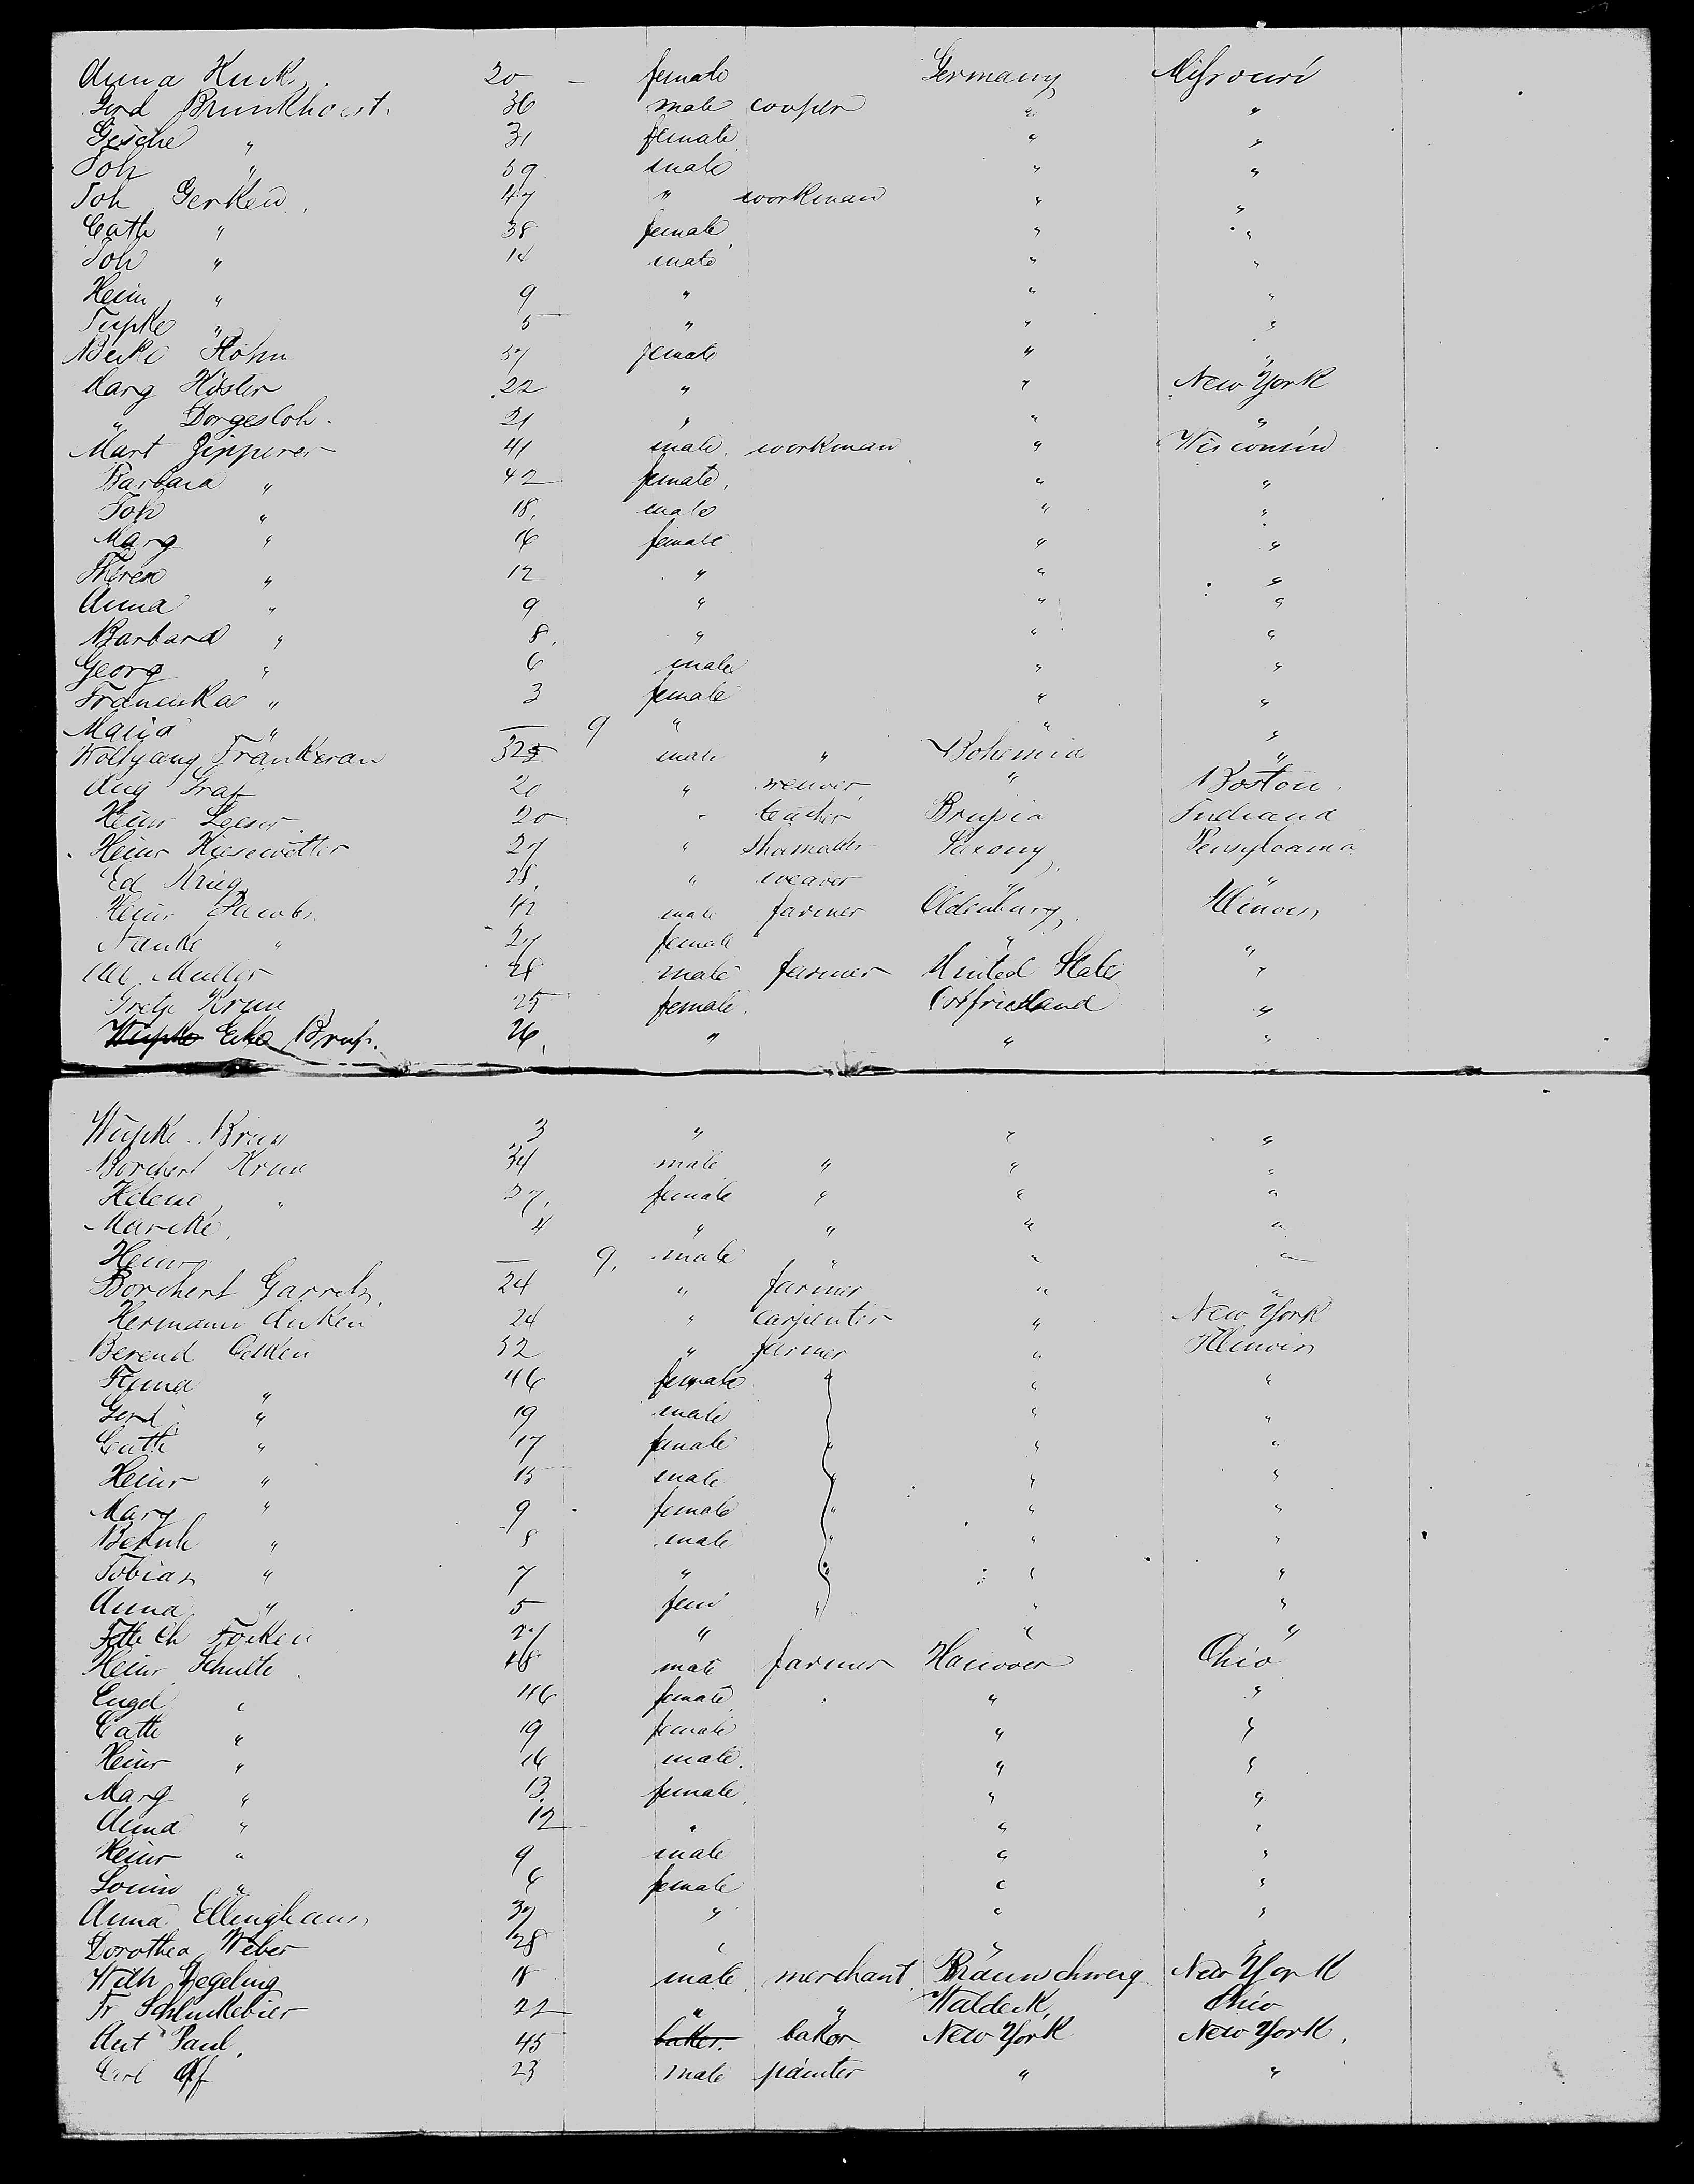 Anna Huck. 20 — female Germany Missouri
Gerd Brunkhorst. 36 male cooper " "
Gesche " 31 female " "
Joh " 59 male " "
Joh Gerken. 47 " workman " "
Cath " 38 female " "
Joh " 14 male " "
Hein " 9 " " "
" 5 " " "
Beke Hohn 57 female " "
Marg Köster 22 " " New York
" Dorgesloh. 21 " " "
Mart Zipperer 41 male. workman " Wisconsin
Barbara " 42 female. " "
Joh " 18. male " "
Marg " 16 female " "
Theres " 12 " " "
Anna " 9 " " "
Barbara " 8. " " "
Georg " 6 male " "
Franciska " 3 female " "
Maria " — 9 " " "
Wolfgang 32 male " Bohemia "
Aug Graf 20 " weaver " Boston.
Heinr Leeser 20 " teacher Prussia Indiana
Heinr Kiesewetter 27 " Saxony Pensylvania
Ed Krieg 28. " weaver " "
Heinr Jacobs 42 male farmer Oldenburg Illinois
Nanke " 27 female " "
Muller 28 male farmer United States "
Gretje Krun 25 female. Ostfriesland "
Wupke Eke 26. " " "
Wupke 3 " " "
Borchert Krun 34 male " " "
Helene " 27. female " " "
Mareke. 4 " " " "
Heinr — 9. male " " "
Borchert Garrels. 24 " farmer " "
Hermann Anken 24 " carpenter " New York
Berend 52 " farmer " Illinois
" 46 female " " "
Gerd " 19 male " "
Cath " 17 female " " "
Heinr " 15 male " " "
Marg " 9 female " " "
Bernh " 8 male " " "
Tobias " 7 " " " "
Anna " 5 fem " " "
Focken 27 " " "
Heinr Schulte. 48 male farmer Hanover Ohio
Engel " 46 female " "
Cath " 19 female " "
Heinr " 16 male. " "
Marg " 13. female. " "
Anna " 12 " " "
Heinr " 9 male " "
Louise " 6 female " "
Anna Ellinghaus 37 " " "
Dorothea Weber 28 " " "
Wilh Hegeling 18 male. merchant. Braunschweig New York
Fr Schluckebier 22 " " Waldeck, Ohio
Ant Paul. 45 baker. baker New York New York.
Carl 23 male painter " "